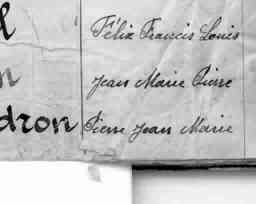 Félix Francis Louis
Jean Marie Pierre
dron Pierre Jean Marie